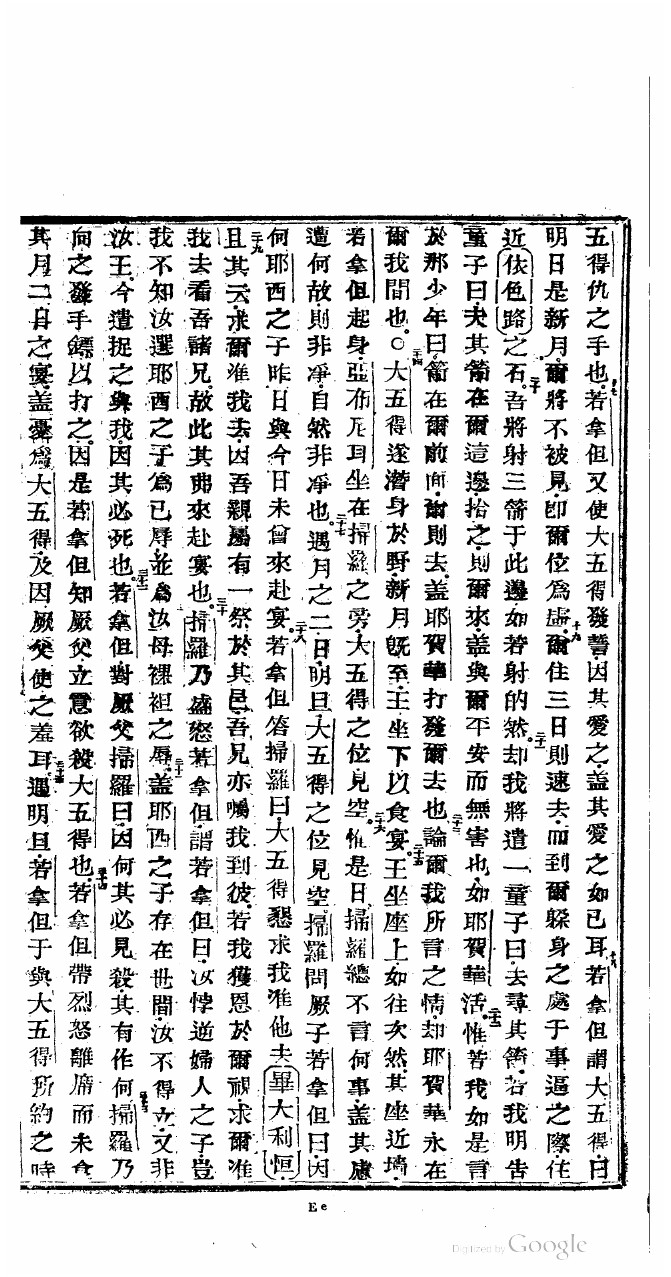 五得仇之手也十七若拿但又使大五得發誓因其愛之盖其愛之如己耳十八若拿但謂大五得曰
明日是新月爾將不被見卽爾位爲虛十九爾住三日則速去而到爾躱身之處于事逼之際住
近依色路之石二十吾將射三箭于此邊如若射的然二十一却我將遣一童子曰去尋其箭若我明告
童子曰夫其箭在爾這邊拾之則爾來盖與爾平安而無害也如耶賀華活二十二惟若我如是言
於那少年曰箭在爾前面爾則去盖耶賀華打發爾去也二十三論爾我所言之情却耶賀華永在
爾我間也二十四○大五得遂潛身於野新月既至王坐下以食宴二十五王坐座上如往次然其座近墙
若拿但起身亞布尼耳坐在掃羅之旁大五得之位見空二十六惟是日掃羅總不言何事盖其慮
遭何故則非凈自然非凈也二十七遇月之二日明旦大五得之位見空掃羅問厥子若拿但曰因
何耶西之子昨日與今日未曾來赴宴二十八若拿但答掃羅曰大五得懇求我准他去畢大利恒
二十九且其云求爾准我去因吾親屬有一祭於其邑吾兄亦囑我到彼若我獲恩於爾視求爾准
我去看吾諸兄故此其弗來赴宴也三十掃羅乃盛怒若拿但謂若拿但曰汝悖逆婦人之子豈
我不知汝選耶西之子爲己辱並爲汝母裸袒之辱三十一盖耶西之子存在世間汝不得立又非
汝王今遣捉之與我因其必死也三十二若拿但對厥父掃羅曰因何其必見殺其有作何三十三掃羅乃
向之發手鏢以打之因是若拿但知厥父立意欲殺大五得也三十四若拿但帶烈怒離席而未食
其月二日之宴盖憂爲大五得及因厥父使之羞耳三十五遇明旦若拿但于與大五得所約之時
Ee
Digitized by Google